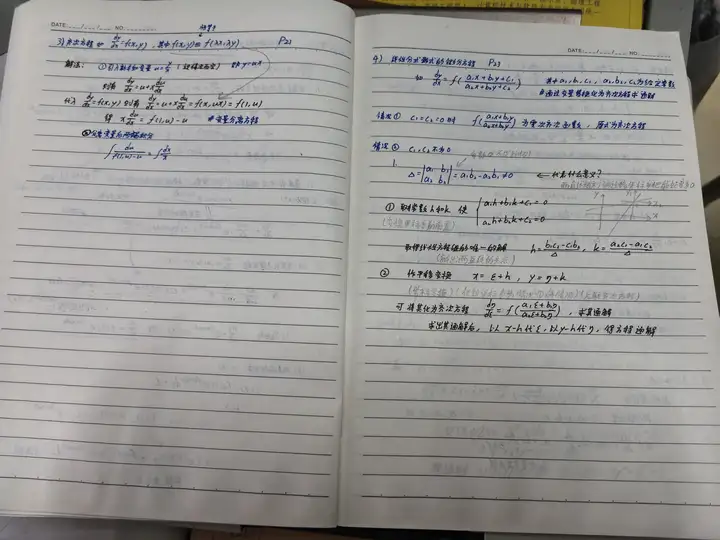 DATE:.../.../... NO.:
3) 齐次方程 如 dy/dx = f(x,y), 其中 f(x,y) ≡ f(λx,λy) P21
解法: ①引入新未知变量 u = y/x 即 y = ux
则有 dy/dx = u + x du/dx
代入 dy/dx = f(x,y) 则有 dy/dx = u + x du/dx = f(x,ux) = f(1,u)
得 x du/dx = f(1,u) - u #变量分离方程
②分离变量后两端积分
∫ du/(f(1,u)-u) = ∫ dx/x
DATE:.../.../... NO.:
4) 线性分式函数的微分方程 P23
如 dy/dx = f((a₁x+b₁y+c₁)/(a₂x+b₂y+c₂)) 其中 a₁, b₁, c₁, a₂, b₂, c₂ 为给定常数
#通过变量替换化为齐次方程
情况① c₁=c₂=0时 f((a₁x+b₁y)/(a₂x+b₂y)) 为零次齐次函数, 原式为齐次方程
情况② c₁, c₂ 不为0
1.
Δ = |a₁ b₁; a₂ b₂| = a₁b₂ - a₂b₁ ≠ 0 ← 代表什么意义?
① 取常数h和k 使 { a₁h+b₁k+c₁=0
a₂h+b₂k+c₂=0
h = (b₁c₂-c₁b₂)/Δ, k = (a₂c₁-a₁c₂)/Δ
② 作平移变换 x = ξ+h, y = η+k
可将其化为齐次方程 dη/dξ = f((a₁ξ+b₁η)/(a₂ξ+b₂η)), 求其通解
求出其通解后, 以 x-h代ξ, 以y-k代η, 得方程通解